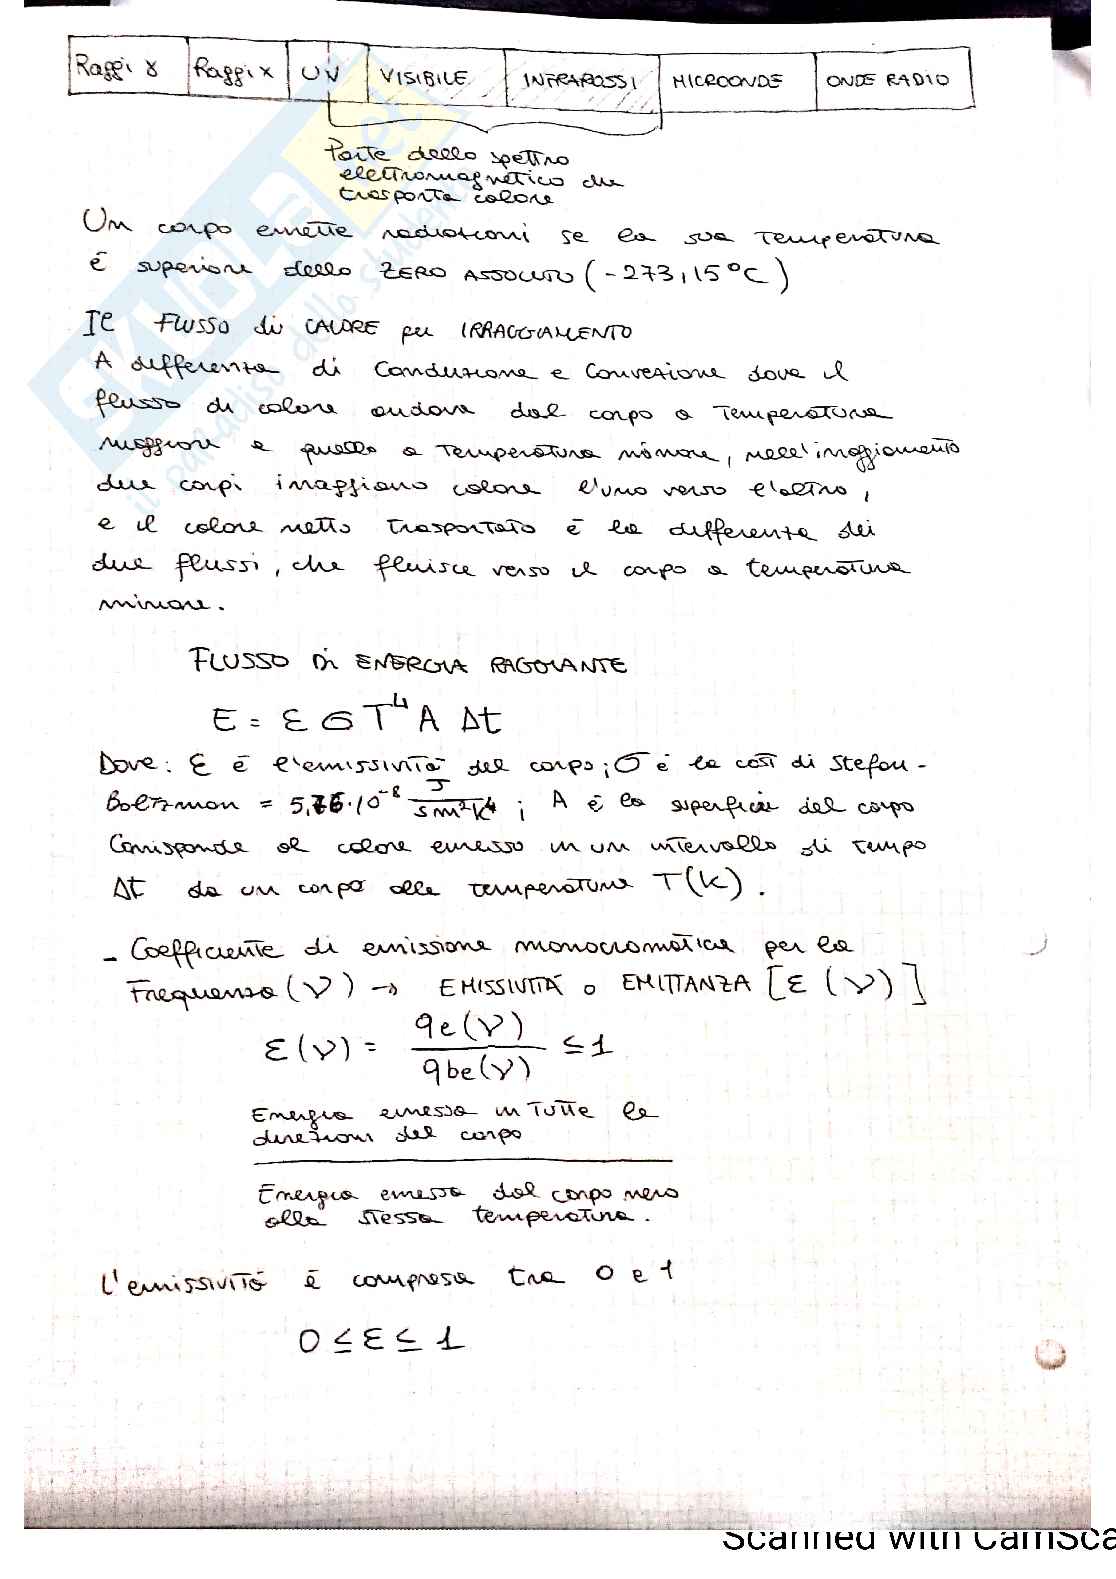 Raggi γ | Raggi x | UV | VISIBILE | INFRAROSSI | MICROONDE | ONDE RADIO
Parte dello spettro
elettromagnetico che
trasporta calore
Un corpo emette radiazioni se la sua temperatura
è superiore dello ZERO ASSOLUTO (-273,15°C)
Il FLUSSO di CALORE per IRRAGGIAMENTO
A differenza di Conduzione e Convezione dove il
flusso di calore andava dal corpo a Temperatura
maggiore a quello a temperatura minore, nell'irraggiamento
due corpi irraggiano calore l'uno verso l'altro,
e il calore netto trasportato è la differenza dei
due flussi, che fluisce verso il corpo a temperatura
minore.
FLUSSO DI ENERGIA RAGGIANTE
E = ε σ T⁴ A Δt
Dove: ε è l'emissività del corpo; σ è la cost di Stefan-
Boltzman = 5,76·10⁻⁸ J/sm²K⁴ ; A è la superficie del corpo
Corrisponde al calore emesso in un intervallo di tempo
Δt da un corpo alla temperatura T(K).
- Coefficiente di emissione monocromatica per la
Frequenza (ν) → EMISSIVITÀ o EMITTANZA [ε(ν)]
ε(ν) = qe(ν) / qbe(ν) ≤ 1
Energia emessa in Tutte le
direzioni del corpo
Energia emessa dal corpo nero
alla stessa temperatura.
L'emissività è compresa tra 0 e 1
0 ≤ ε ≤ 1
SKUOLA.net
il paradiso dello studente
Scanned with CamSca